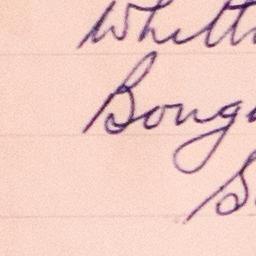 Whitt
Boug
S